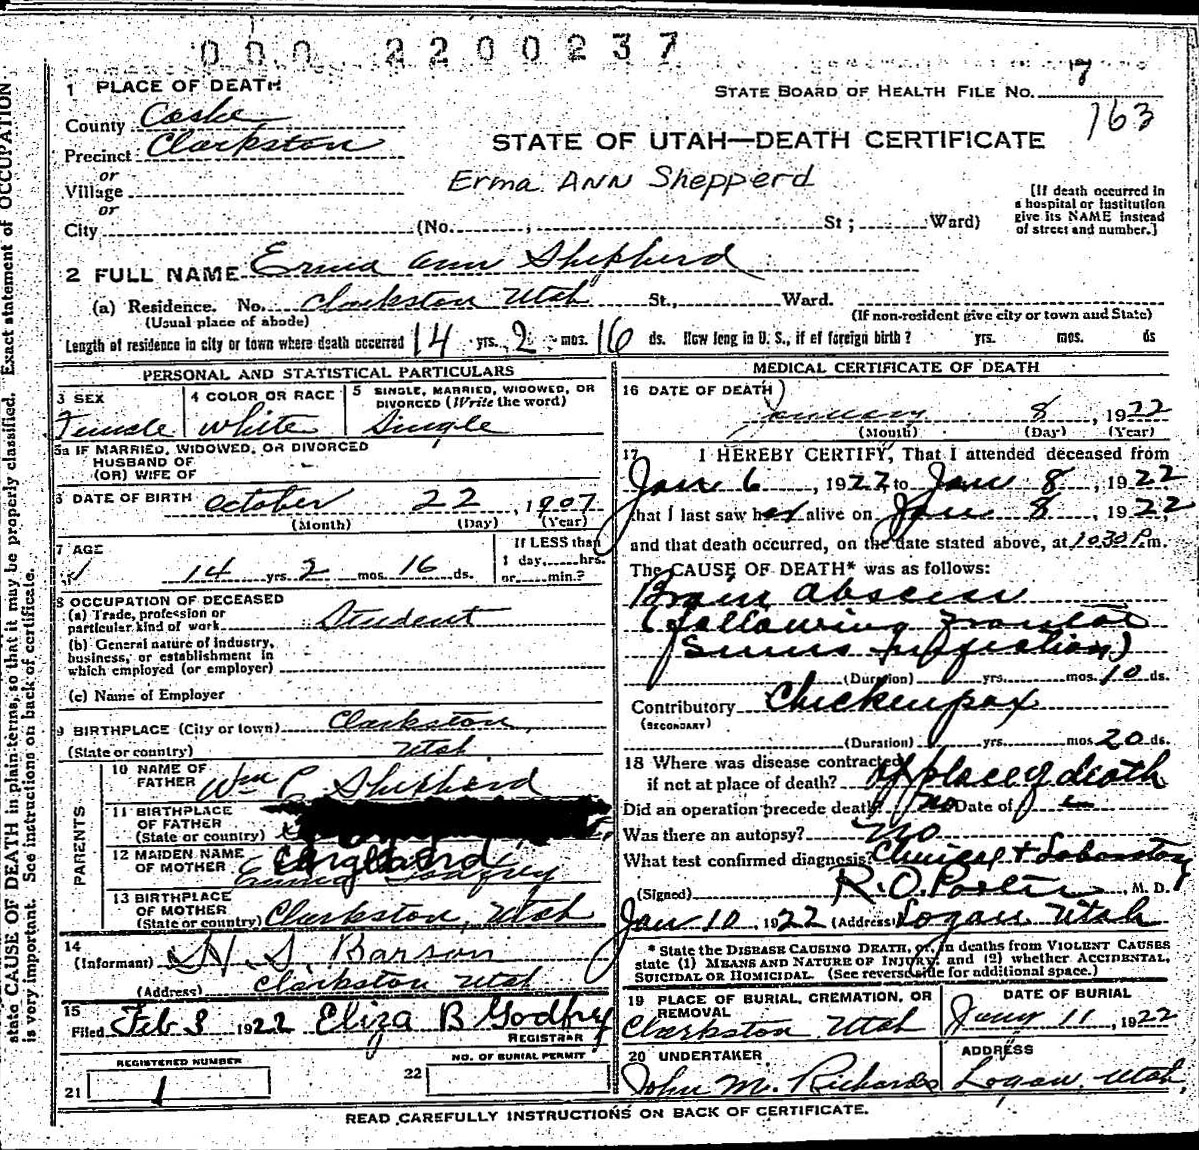 000 2200237
1 PLACE OF DEATH
STATE BOARD OF HEALTH FILE NO. 7
763
County Cache
Precinct Clarkston
or
Village
or
STATE OF UTAH—DEATH CERTIFICATE
Erma ANN Shepperd
[If death occurred in
a hospital or institution
give its NAME instead
of street and number.]
City (No. ; St ; Ward)
2 FULL NAME Erma Ann Shepherd
(a) Residence. No. Clarkston Utah St., Ward.
(Usual place of abode)
(If non-resident give city or town and State)
Length of residence in city or town where death occurred 14 yrs. 2 mos. 16 ds. How long in U. S., if of foreign birth? yrs. mos. ds
PERSONAL AND STATISTICAL PARTICULARS
3 SEX
Female
4 COLOR OR RACE
White
5 SINGLE, MARRIED, WIDOWED, OR
DIVORCED (Write the word)
Single
5a IF MARRIED, WIDOWED, OR DIVORCED
HUSBAND OF
(OR) WIFE OF
6 DATE OF BIRTH October 22, 1907
(Month) (Day) (Year)
7 AGE
14 yrs. 2 mos. 16 ds.
If LESS than
1 day, hrs.
or min.?
8 OCCUPATION OF DECEASED
(a) Trade, profession or
particular kind of work Student
(b) General nature of industry,
business, or establishment in
which employed (or employer)
(c) Name of Employer
9 BIRTHPLACE (City or town) Clarkston
(State or country) Utah
PARENTS
10 NAME OF
FATHER Wm C Shepherd
11 BIRTHPLACE
OF FATHER
(State or country)
England
12 MAIDEN NAME
OF MOTHER Emma Godfrey
13 BIRTHPLACE
OF MOTHER
(State or country) Clarkston, Utah
14
(Informant) H. S. Barson
(Address) Clarkston Utah
15
Filed Feb 3 1922 Eliza B Godfry
REGISTRAR
REGISTERED NUMBER
21 1
NO. OF BURIAL PERMIT
22
MEDICAL CERTIFICATE OF DEATH
16 DATE OF DEATH
January 8, 1922
(Month) (Day) (Year)
17 I HEREBY CERTIFY, That I attended deceased from
Jan 6, 1922, to Jan 8, 1922
that I last saw her alive on Jan 8, 1922,
and that death occurred, on the date stated above, at 10:30 P.m.
The CAUSE OF DEATH* was as follows:
Brain abscess
(following Frontal
Sinus infection)
(Duration) yrs. mos. 10 ds.
Contributory Chickenpox
(SECONDARY)
(Duration) yrs. mos. 20 ds.
18 Where was disease contracted
if not at place of death? at place of death
Did an operation precede death? no Date of
Was there an autopsy? No
What test confirmed diagnosis? Clinical + Laboratory
(Signed) R. O. Porter, M. D.
Jan 10, 1922 (Address) Logan Utah
* State the DISEASE CAUSING DEATH, or, in deaths from VIOLENT CAUSES
state (1) MEANS AND NATURE OF INJURY, and (2) whether ACCIDENTAL,
SUICIDAL OR HOMICIDAL. (See reverse side for additional space.)
19 PLACE OF BURIAL, CREMATION, OR
REMOVAL
Clarkston Utah
DATE OF BURIAL
Jany 11, 1922
20 UNDERTAKER
John M. Richards
ADDRESS
Logan, Utah,
READ CAREFULLY INSTRUCTIONS ON BACK OF CERTIFICATE.
state CAUSE OF DEATH in plain terms, so that it may be properly classified. Exact statement of OCCUPATION
is very important. See instructions on back of certificate.